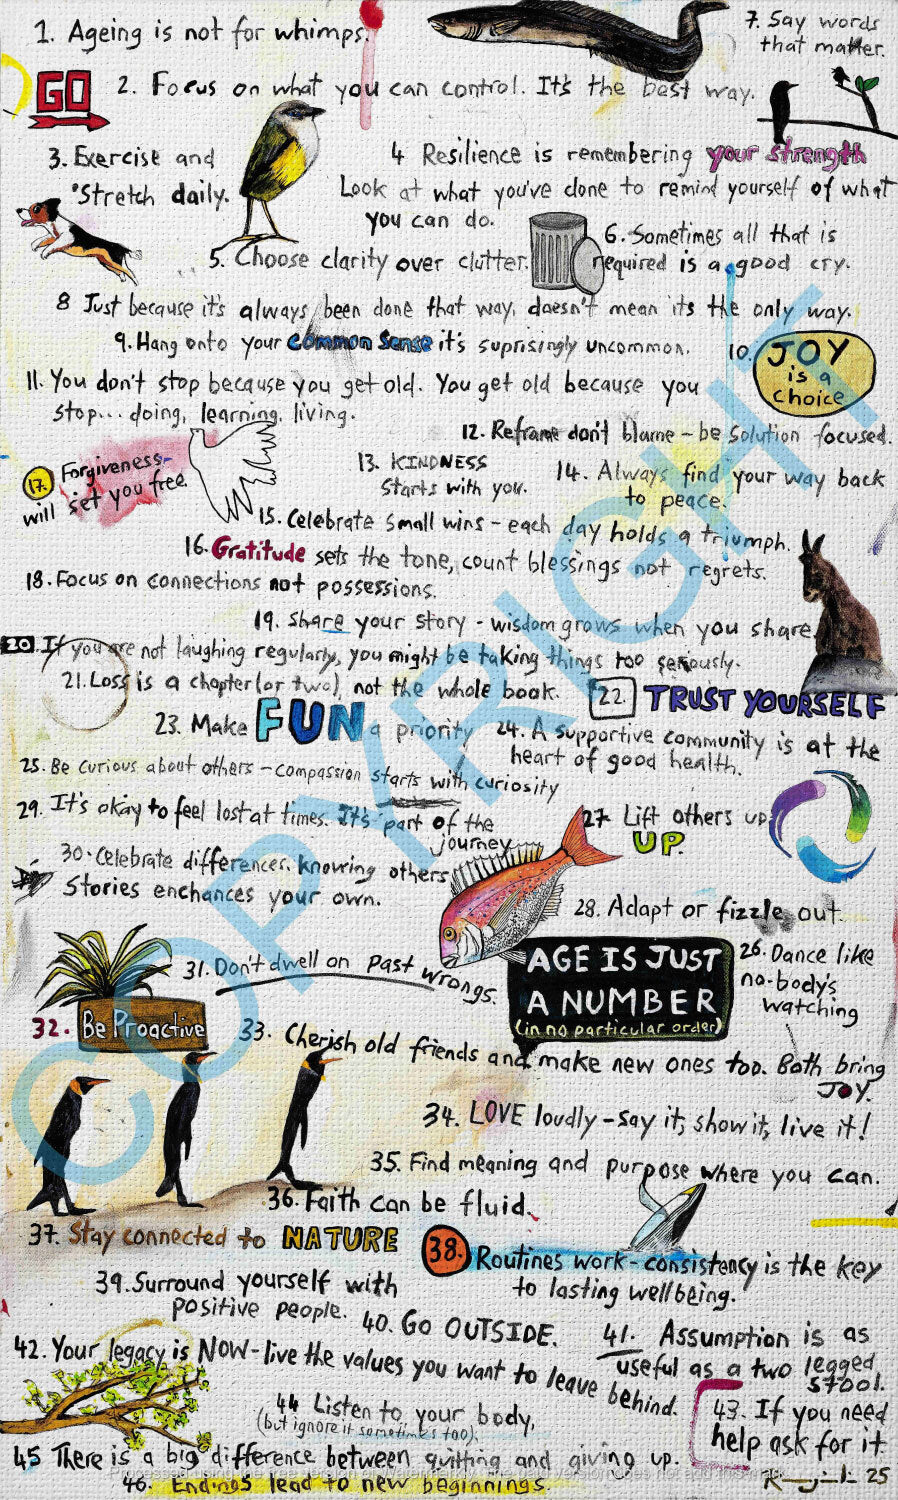 1. Ageing is not for whimps.
7. Say words
that matter.
GO
2. Focus on what you can control. It's the best way.
3. Exercise and
stretch daily.
4 Resilience is remembering your strength
Look at what you've done to remind yourself of what
you can do.
5. Choose clarity over clutter.
6. Sometimes all that is
required is a good cry.
8 Just because it's always been done that way, doesn't mean its the only way.
9. Hang onto your common sense it's suprisingly uncommon.
10. JOY
is a
choice
11. You don't stop because you get old. You get old because you
stop... doing, learning, living.
12. Reframe don't blame - be solution focused.
13. KINDNESS
starts with you.
14. Always find your way back
to peace.
17. Forgiveness-
will set you free.
15. Celebrate small wins - each day holds a triumph.
16. Gratitude sets the tone, count blessings not regrets.
18. Focus on connections not possessions.
19. Share your story - wisdom grows when you share.
20. If you are not laughing regularly, you might be taking things too seriously.
21. Loss is a chapter (or two), not the whole book.
22. TRUST YOURSELF
23. Make FUN a priority
24. A supportive community is at the
heart of good health.
25. Be curious about others - compassion starts with curiosity
29. It's okay to feel lost at times. It's part of the
journey
27 Lift others up
UP.
30. Celebrate differences. Knowing others
stories enchances your own.
28. Adapt or fizzle out.
31. Don't dwell on past wrongs.
AGE IS JUST
A NUMBER
(in no particular order)
26. Dance like
no-body's
watching
32. Be Proactive
33. Cherish old friends and make new ones too. Both bring
JOY.
34. LOVE loudly - say it, show it, live it!
35. Find meaning and purpose where you can.
36. Faith can be fluid.
37. Stay connected to NATURE
38. Routines work - consistency is the key
to lasting wellbeing.
39. Surround yourself with
positive people.
40. GO OUTSIDE.
41. Assumption is as
useful as a two legged
stool.
42. Your legacy is NOW - live the values you want to leave behind.
43. If you need
help ask for it
44 Listen to your body,
(but ignore it sometimes too).
45 There is a big difference between quitting and giving up.
46. Endings lead to new beginnings.
25
COPYRIGHT